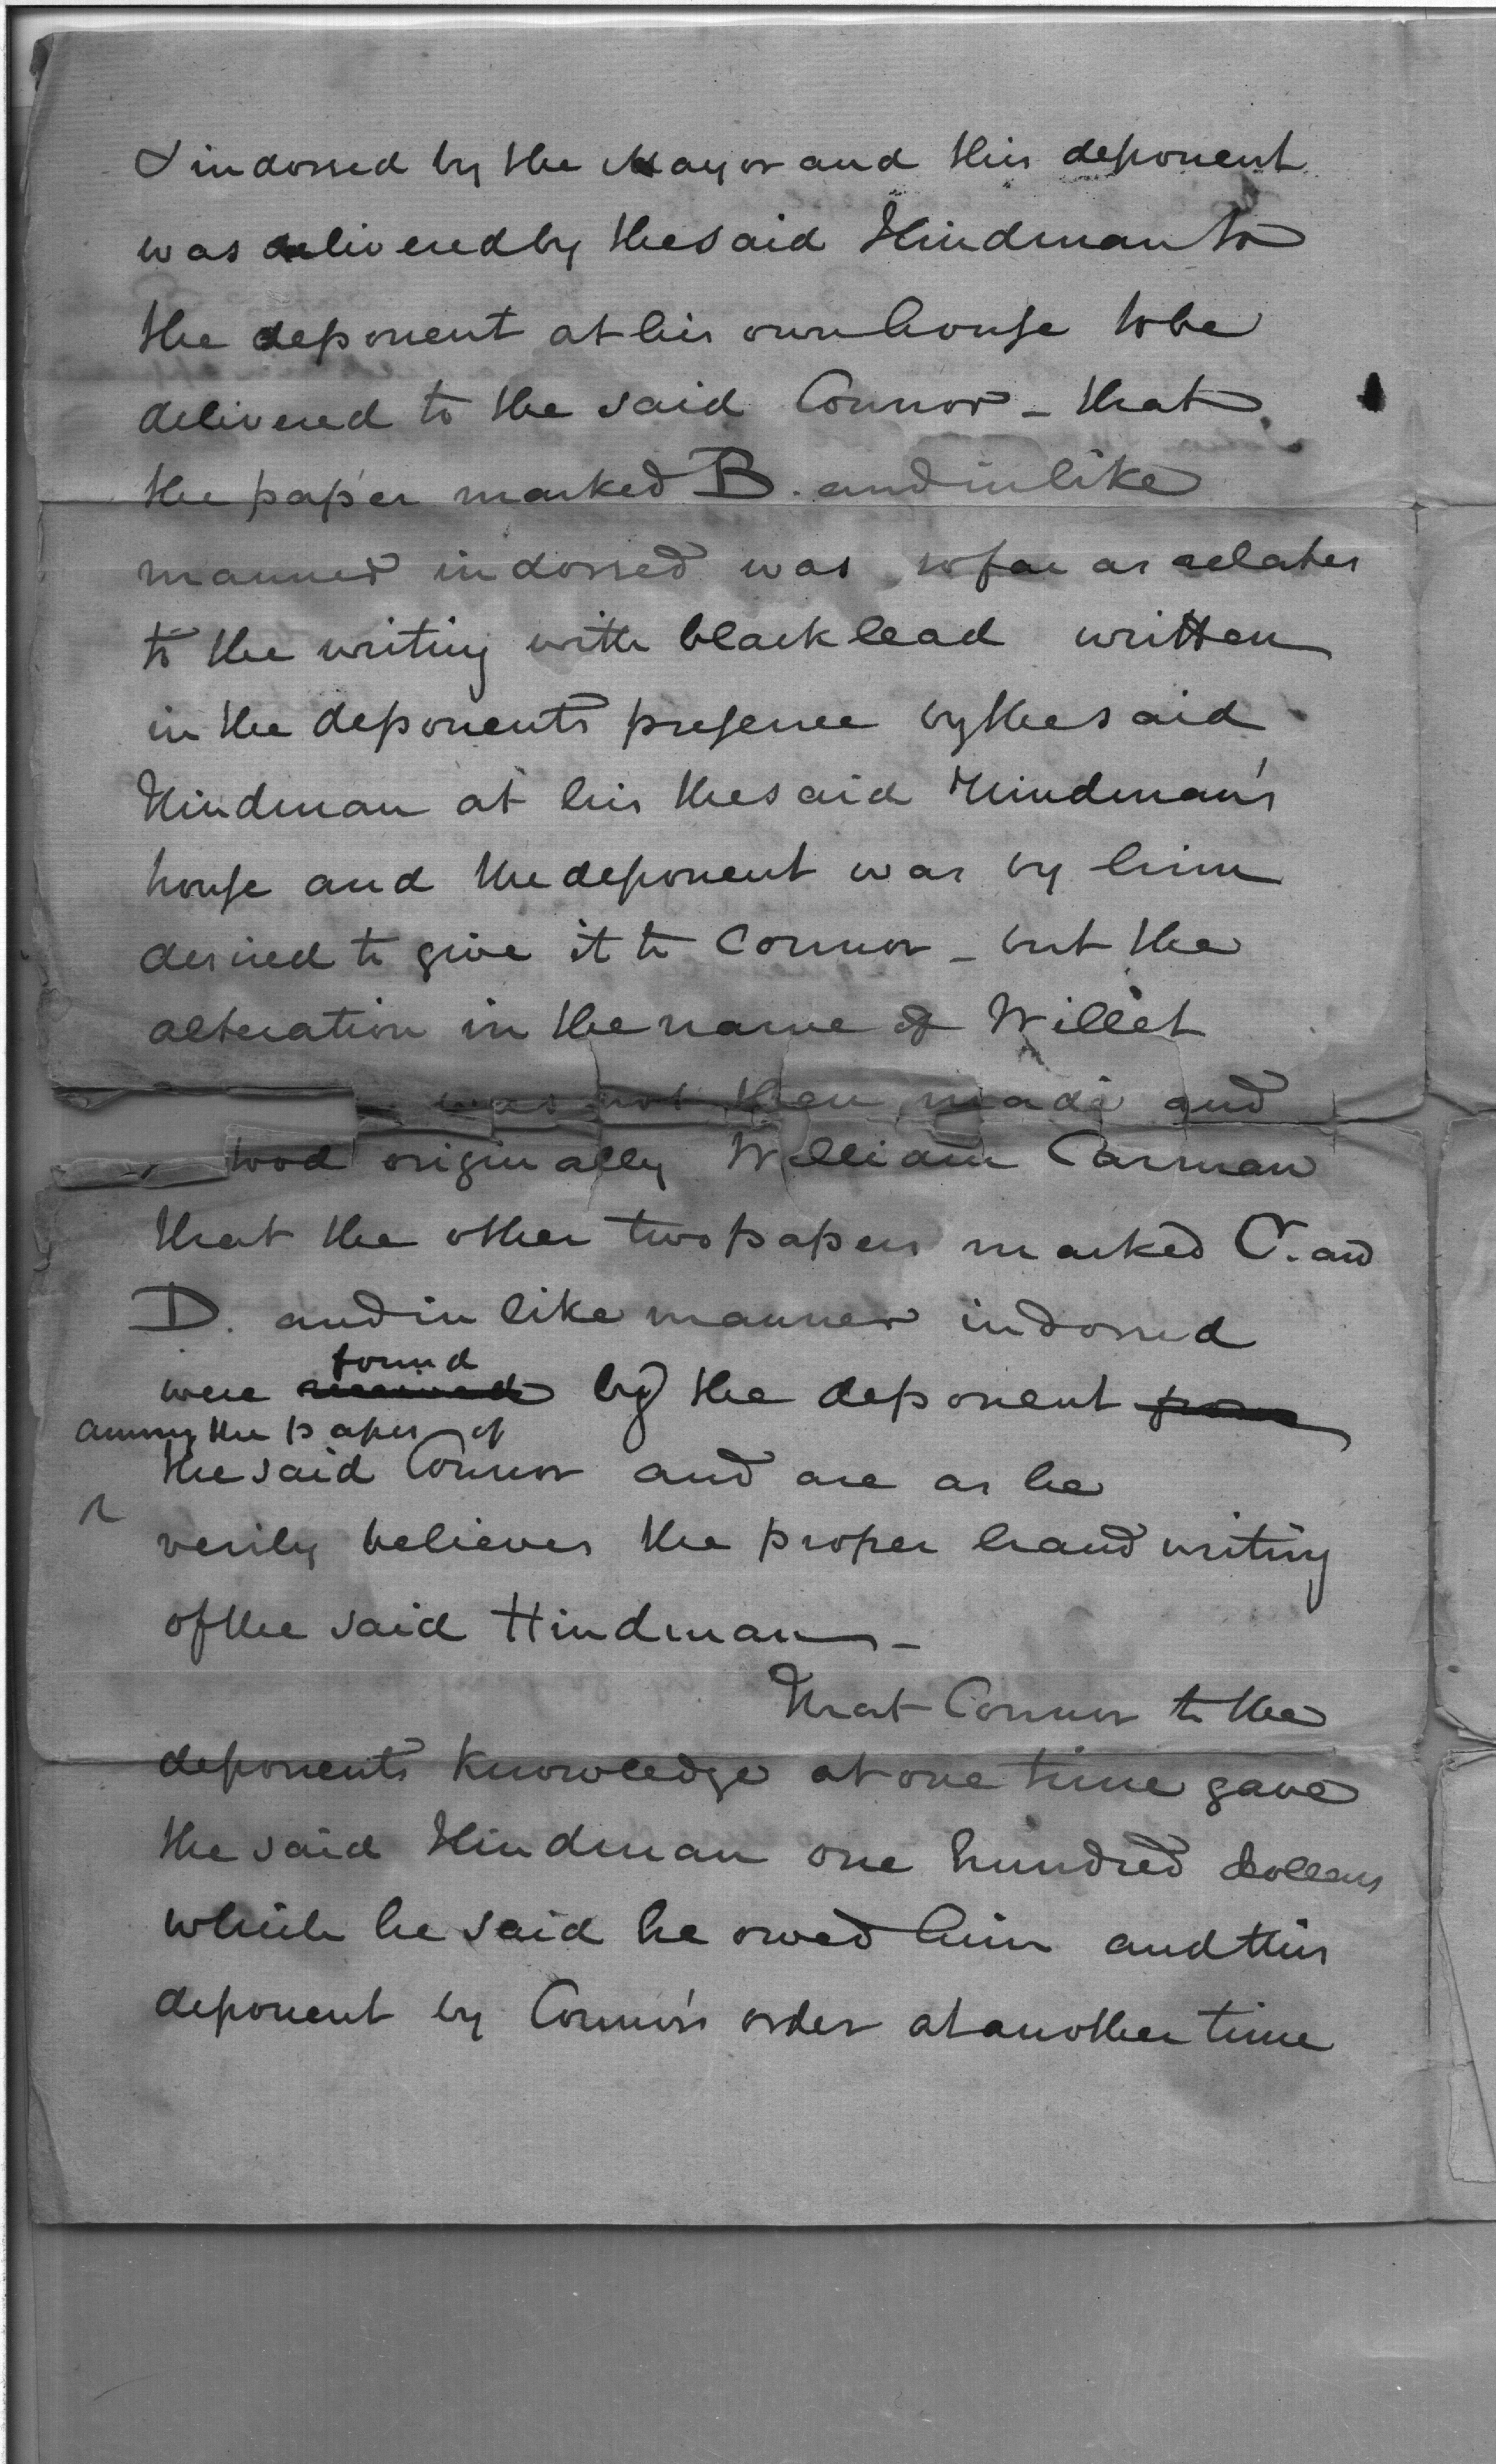 & indorsed by the Mayor and this deponent
was delivered by the said Hindman to
the deponent at his own house to be
delivered to the said Connor - that
the paper marked B. and in like
manner indorsed was so far as relates
to the writing with black lead written
in the deponents presence by the said
Hindman at his the said Hindman's
house and the deponent was by him
desired to give it to Connor - but the
alteration in the name of Willet
was not then made and
stood originally William Carman
that the other two papers marked C. and
D. and in like manner indorsed
were received found by the deponent from
among the papers of
the said Connor and are as he
verily believes the proper hand writing
of the said Hindman -
That Connor to the
deponents knowledge at one time gave
the said Hindman one hundred dollars
which he said he owed him and this
deponent by Connor's order at another time